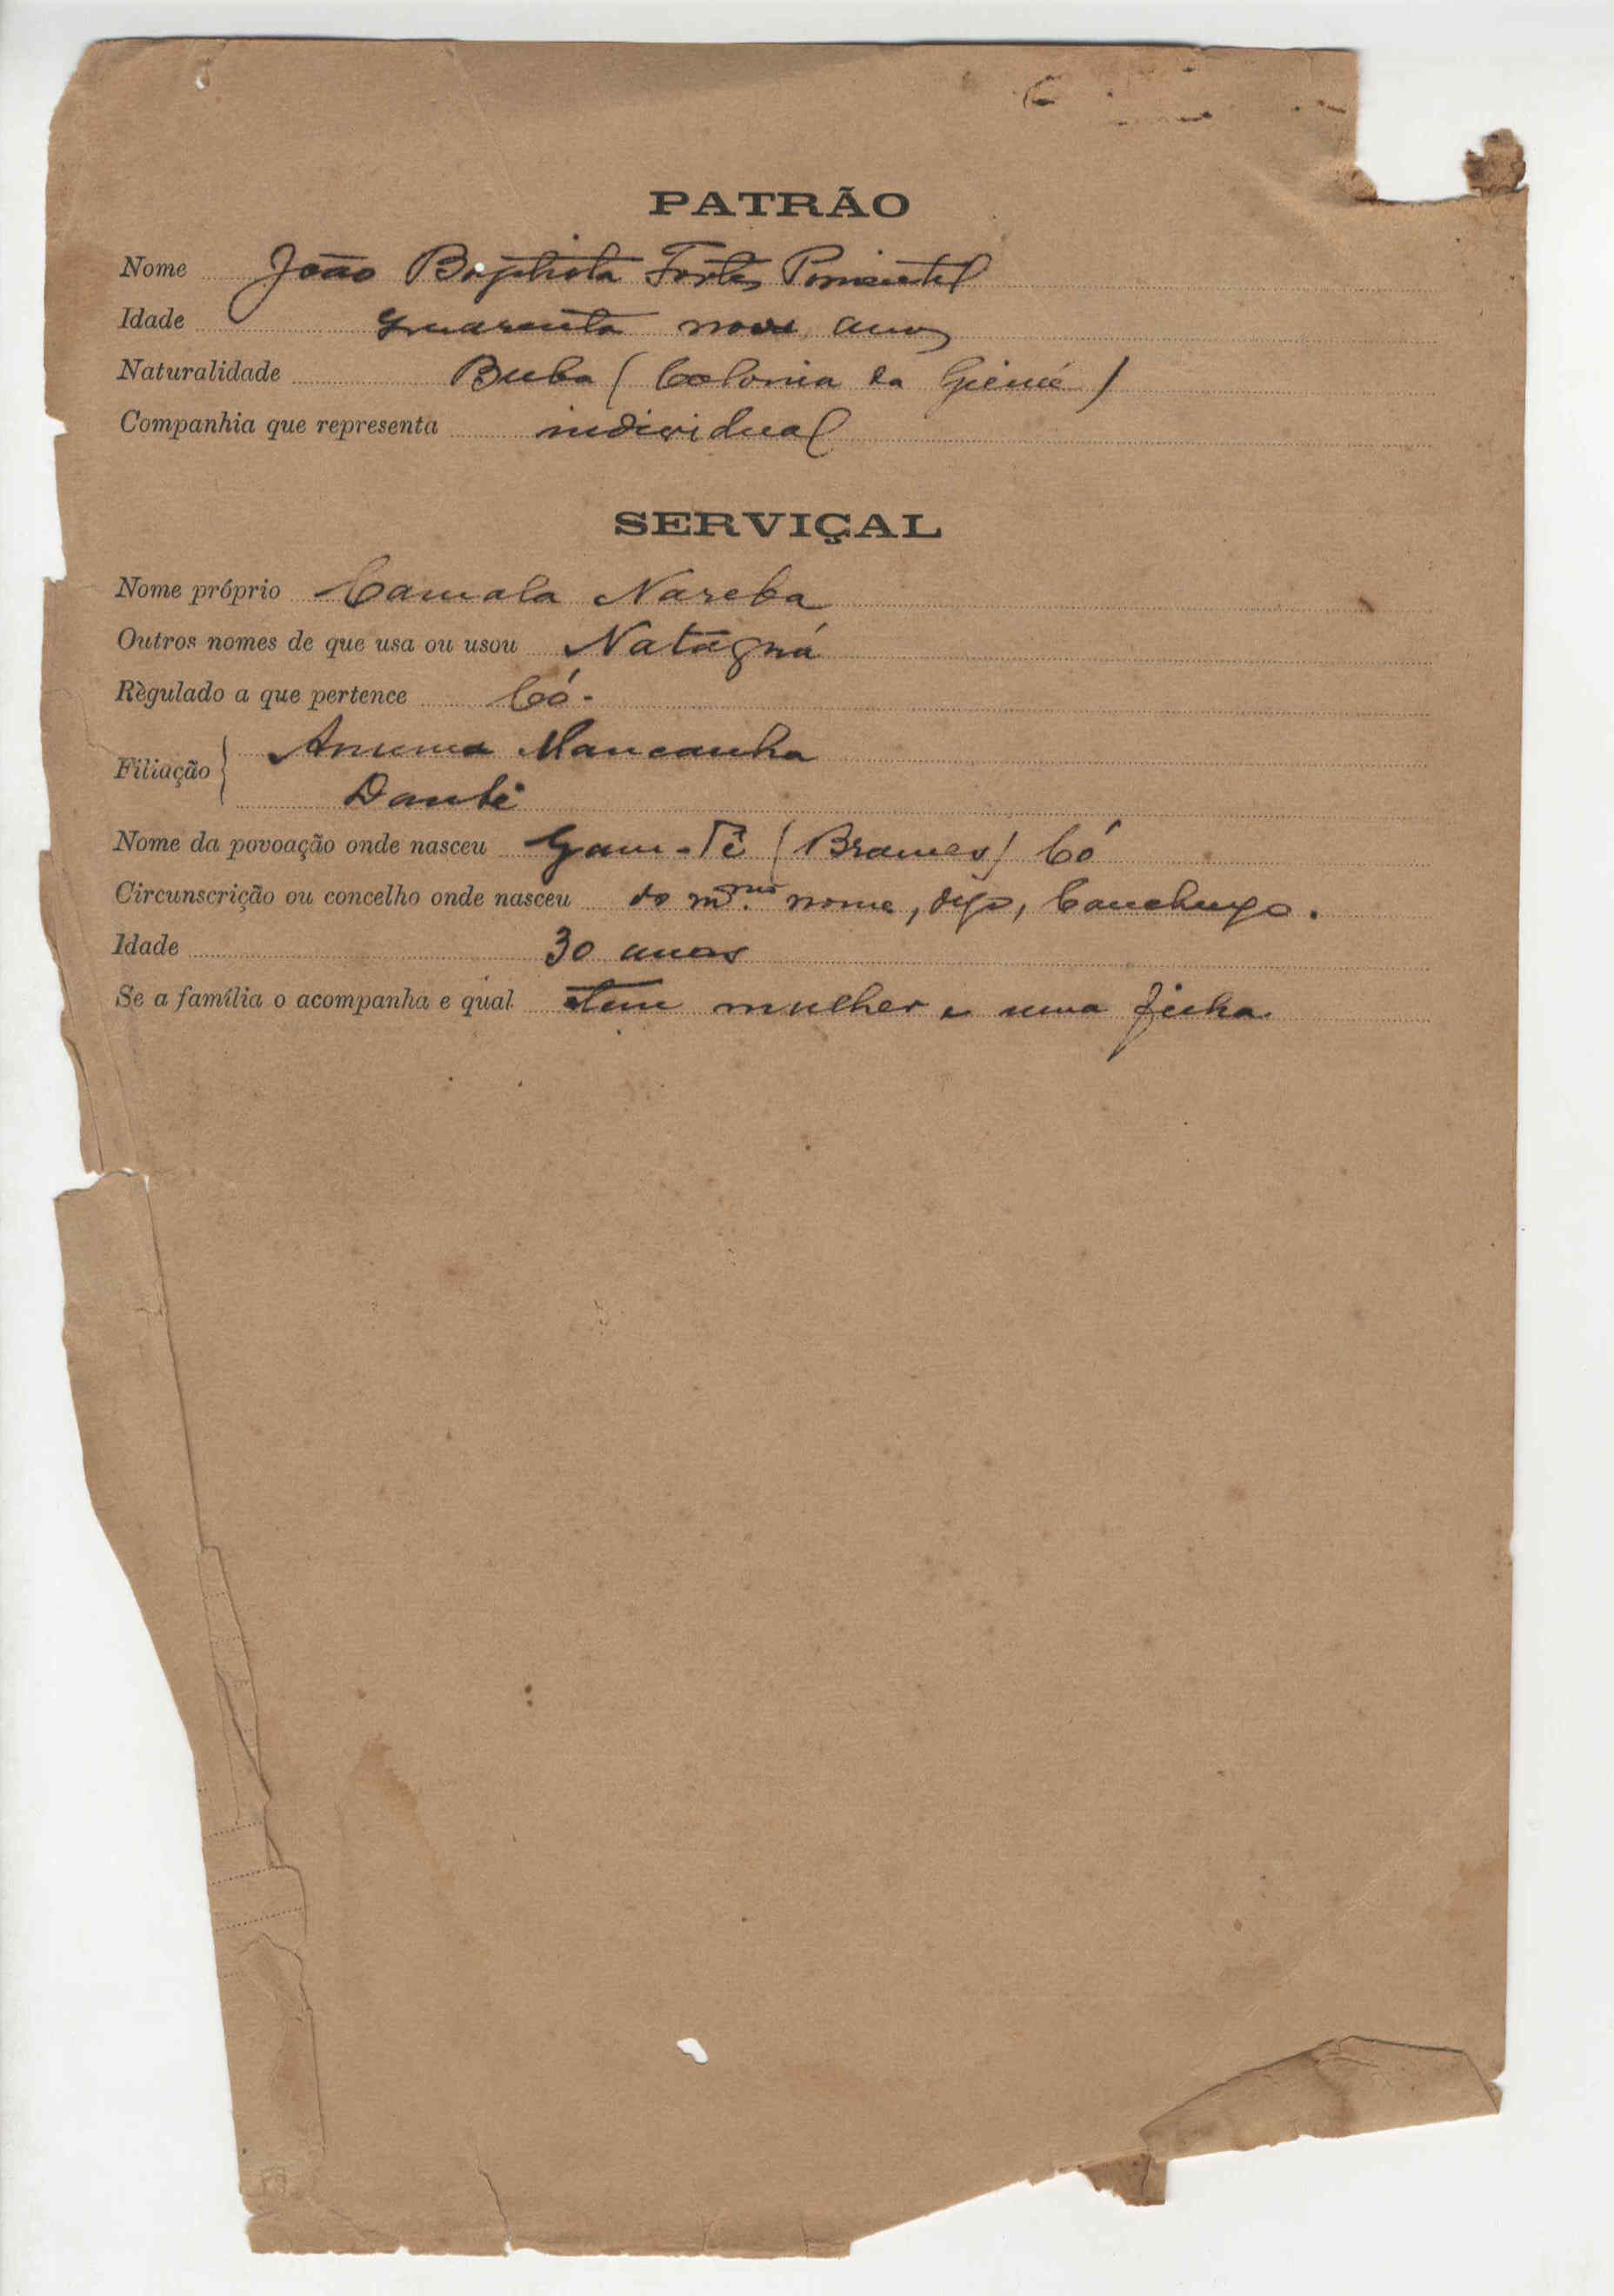 PATRÃO
Nome João Baptista Fortes Pimentel
Idade quarenta nove anos
Naturalidade Buba (Colonia da Guiné)
Companhia que representa individual
SERVIÇAL
Nome próprio Camala Nareba
Outros nomes de que usa ou usou Natagná
Règulado a que pertence Có-
Filiação { Anuma Mancanha
Dambé
Nome da povoação onde nasceu Gam-Tê (Brames) Có
Circunscrição ou concelho onde nasceu do m.mo nome, digo, Canchungo.
Idade 30 anos
Se a família o acompanha e qual tem mulher e uma filha.